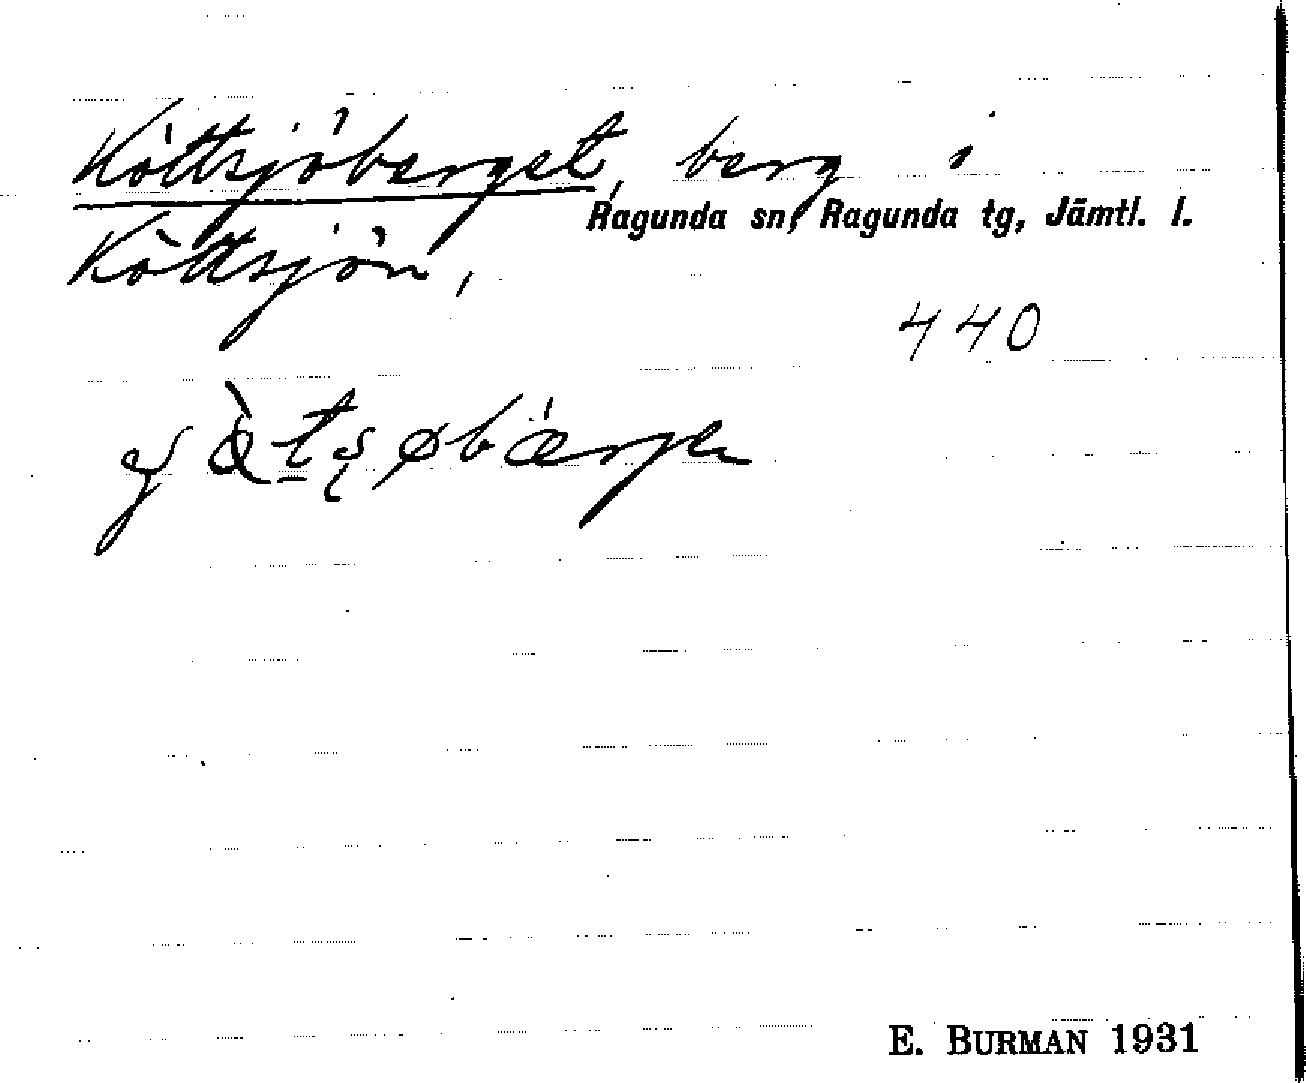 Köttsjöberget, berg i
Ragunda sn, Ragunda tg, Jämtl. l.
Köttsjön,
440
E. BURMAN 1931